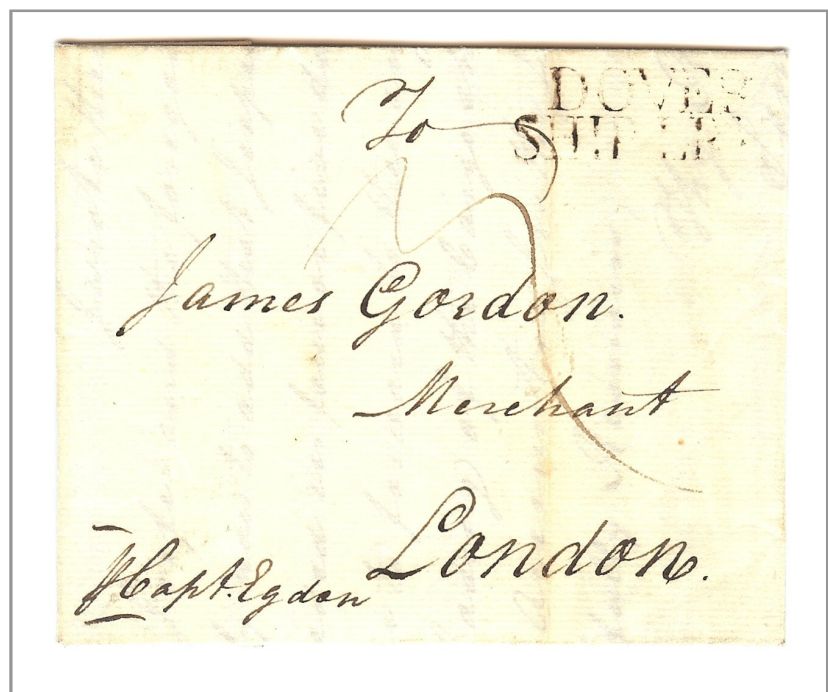 DOVER
SHIP LRE
To
James Gordon.
Merchant
London.
Capt. Egdon